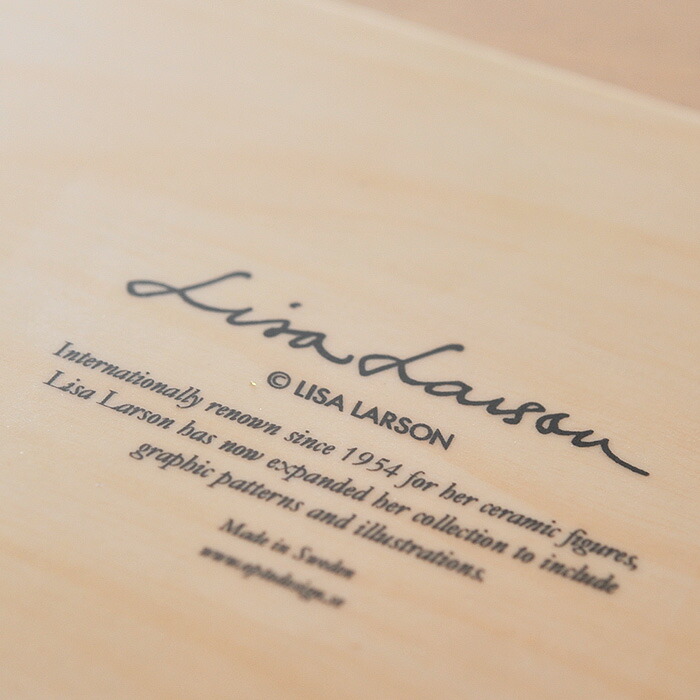 Lisa Larson
© LISA LARSON
Internationally renown since 1954 for her ceramic figures,
Lisa Larson has now expanded her collection to include
graphic patterns and illustrations.
Made in Sweden